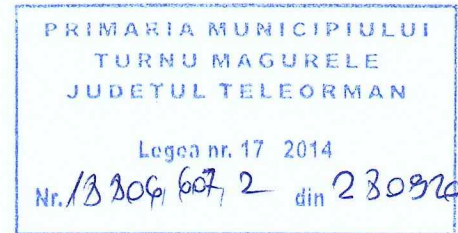 PRIMARIA MUNICIPIULUI
TURNU MAGURELE
JUDETUL TELEORMAN
Legea nr. 17 2014
Nr. 607, 2 din